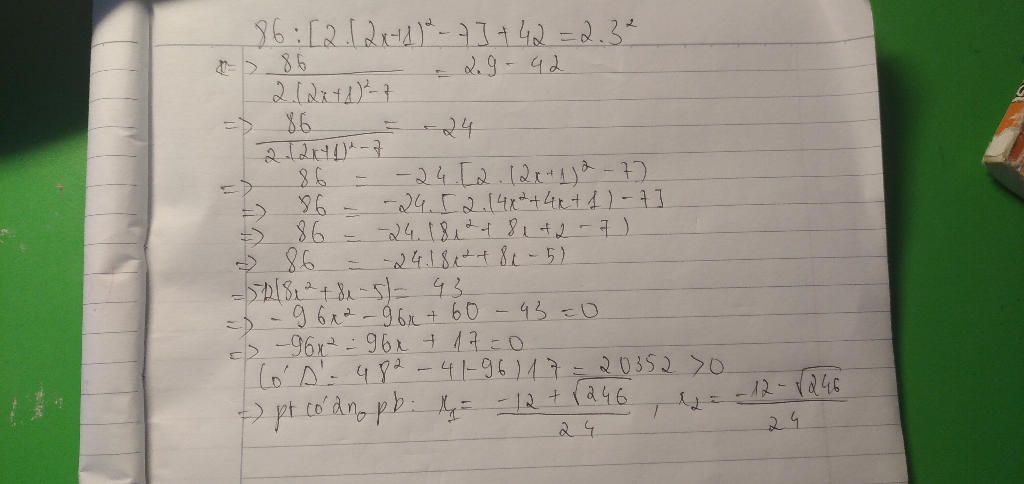 86 : [2.(2x+1)² - 7] + 42 = 2.3²
=> 86 / 2.(2x+1)² - 7 = 2.9 - 42
=> 86 / 2.(2x+1)² - 7 = -24
=> 86 = -24.[2.(2x+1)² - 7)
=> 86 = -24.[2.(4x²+4x+1) - 7]
=> 86 = -24.(8x² + 8x + 2 - 7)
=> 86 = -24(8x² + 8x - 5)
=> 12(8x² + 8x - 5) = 43
=> -96x² - 96x + 60 - 43 = 0
=> -96x² - 96x + 17 = 0
Có Δ' = 48² - 4(-96)17 = 20352 > 0
=> pt có 2no pb: x₁ = -12 + √246 / 24 , x₂ = -12 - √246 / 24